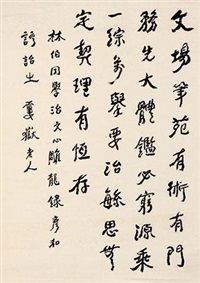 文場筆苑有術有門
務先大體鑑必窮源乘
一總萬舉要治繁思無
定契理有恆存
林伯同學治文心雕龍錄彥和
語詒之 老人